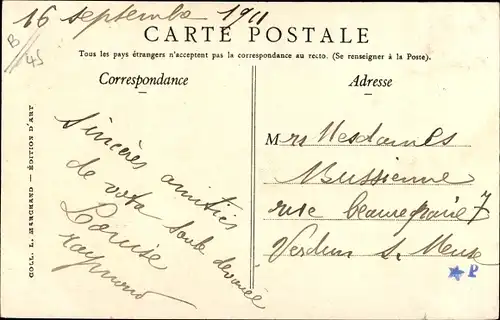 16 septembre 1911
B/45
CARTE POSTALE
Tous les pays étrangers n'acceptent pas la correspondance au recto. (Se renseigner à la Poste).
Correspondance
Adresse
Sincères amitiés
de vota toute dévouée
Louise
Raymond
Mrs Mesdames
Bussienne
rue beaurepaire 7
Verdun s. Meuse
P
COLL. L. MARCHAND — ÉDITION D'ART